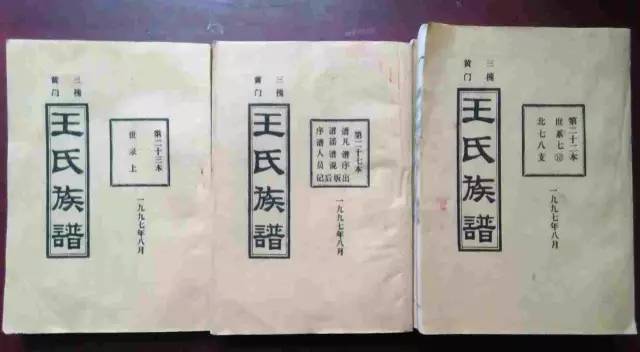 三槐
黄门
王氏族譜
第二十三本
世录上
一九九七年八月
三槐
黄门
王氏族譜
第二十七本
谱凡 谱序
谱谣 谱说
序谱人员
出版后记
一九九七年八月
三槐
黄门
王氏族譜
第二十二本
世系七
北七八支
一九九七年八月